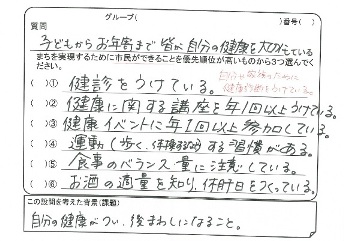 グループ( )番号( )
質問
子どもからお年寄まで皆が自分の健康を大切にしている
まちを実現するために市民ができることを優先順位が高いものから3つ選んでください。
自分や家族のために
( )① 健診をうけている。
( )② 健康に関する講座を年1回以上うけている。
( )③ 健康イベントに年1回以上参加している。
( )④ 運動(歩く、体操するなど)する習慣がある。
( )⑤ 食事のバランス・量に注意している。
( )⑥ お酒の適量を知り、休肝日をつくっている。
この設問を考えた背景(課題)
自分の健康がつい、後まわしになること。